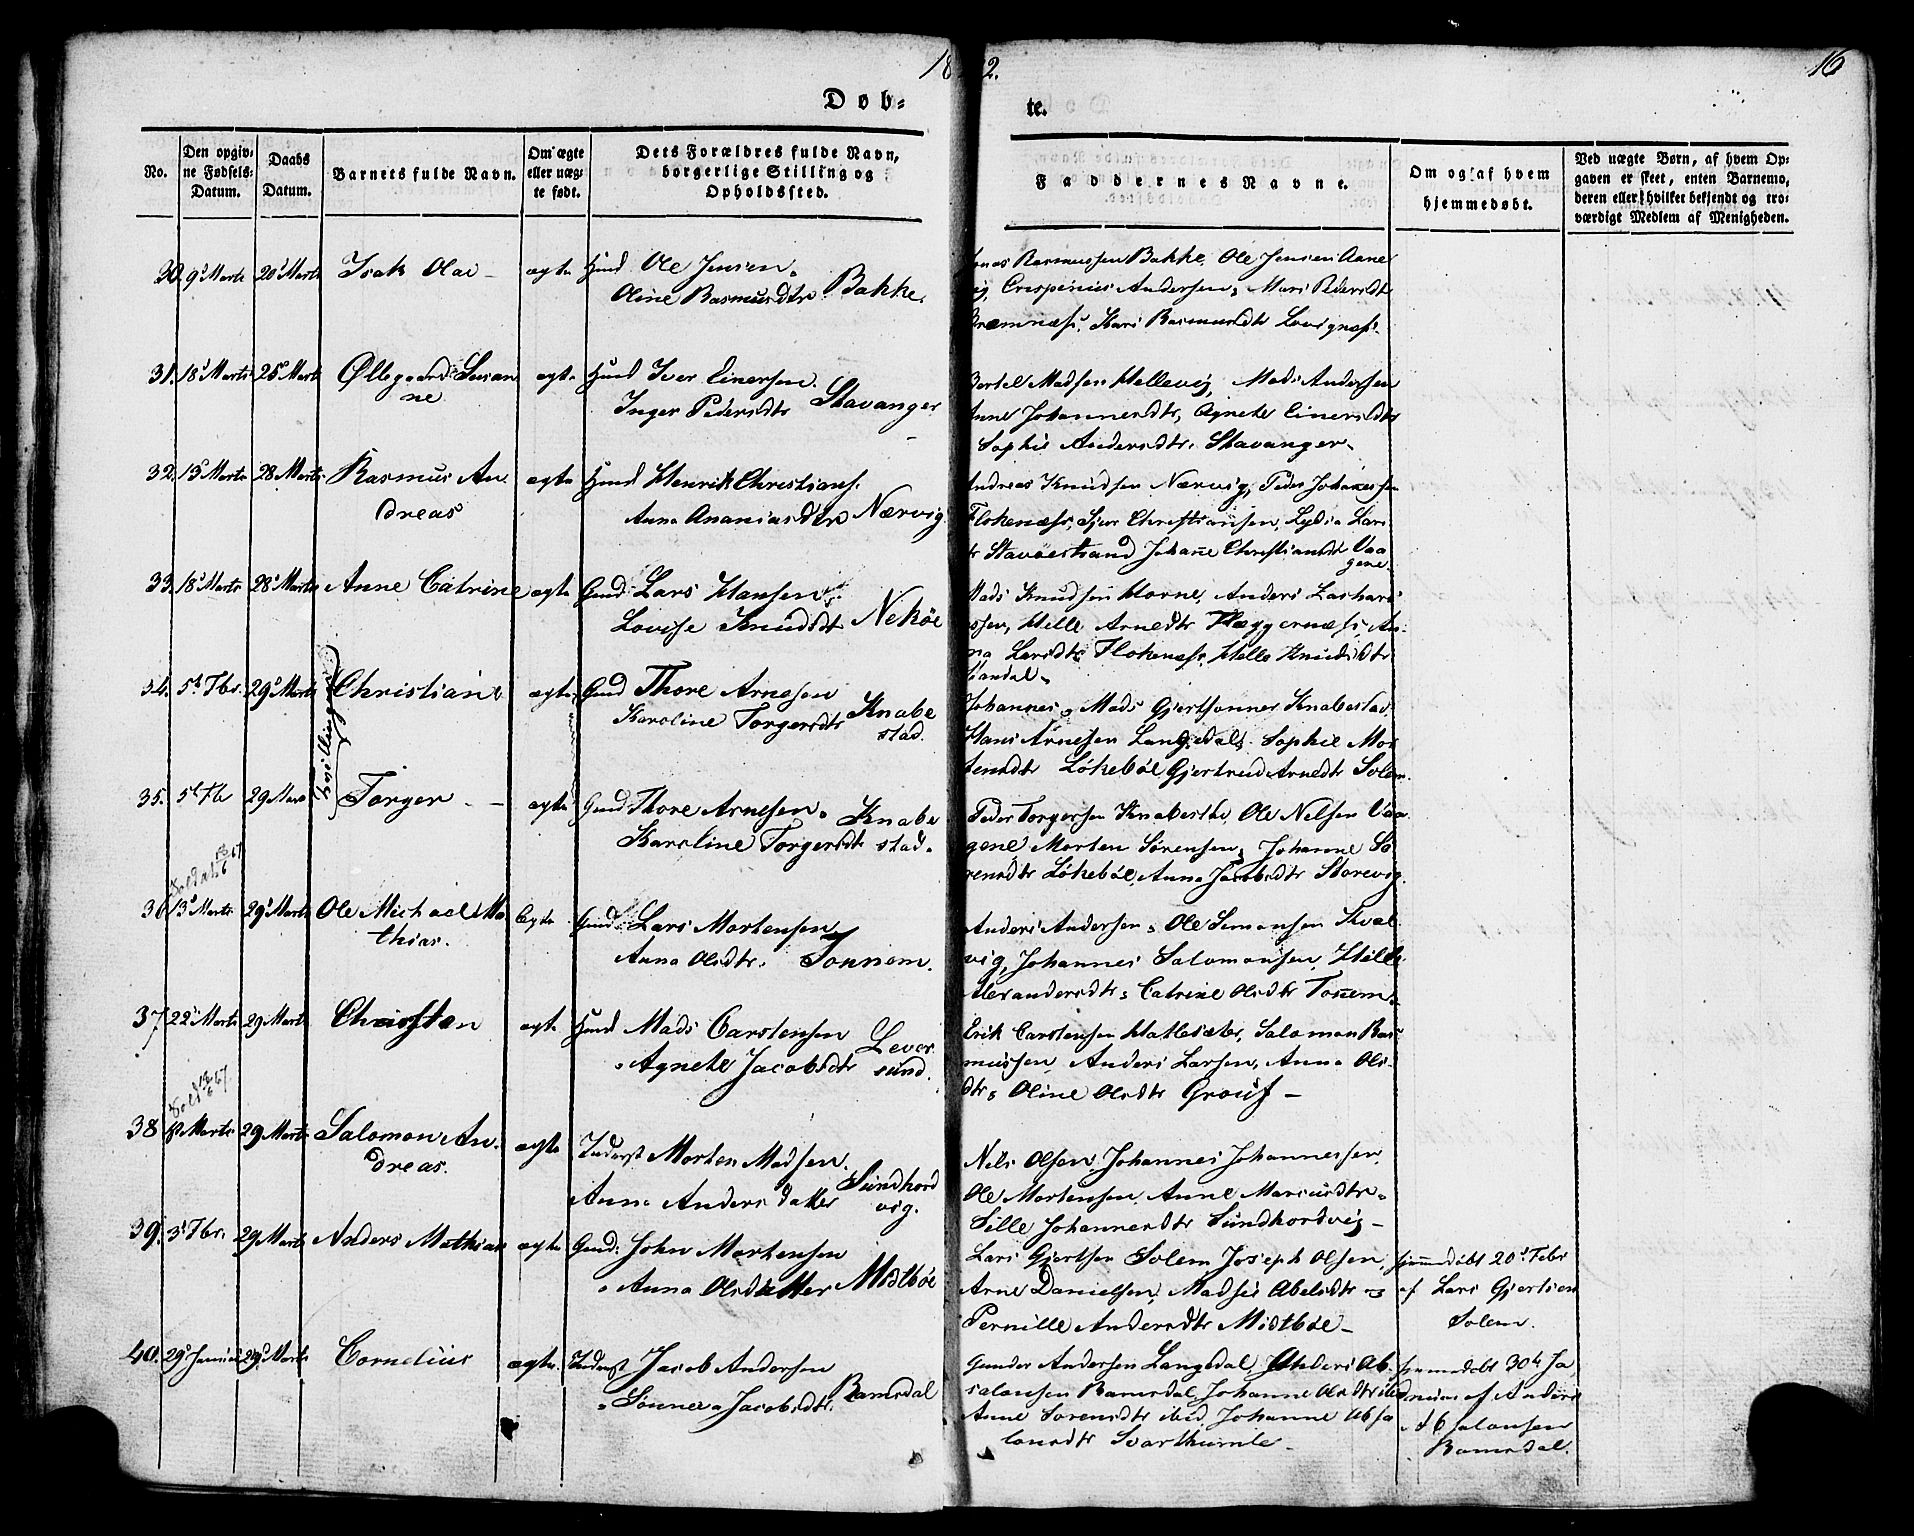 18 2.
16
Døb=
te.
No.
Den opgiv=
ne Fødsels=
Datum.
Daabs
Datum.
Barnets fulde Navn.
Om ægte
eller uæg=
te født.
Dets Forældres fulde Navn,
borgerlige Stilling og
Opholdssted.
Faddernes Navne.
Om og af hvem
hjemmedøbt.
Ved uægte Børn, af hvem Op=
gaven er skeet, enten Barnemo,
deren eller hvilket bekjendt og tro=
værdigt Medlem af Menigheden.
30. 9d Marts 20d Marts Isak Olai – ægte Huusmd Ole Jensen
Oline Rasmusdtr Bakke.
Jonas Rasmussen Bakke, Ole Jensen Aane
vig, Crispinius Andersen, Mari Pedersdt
Bremnæs, Kari Rasmusdtr Lovignæs.
31. 18d Marts 25d Marts Øllegaard Susan
ne ægte Huusmd Iver Einersen
Inger Pedersdtr Stavanger
Bertel Madsen Hellevig, Mads Andersen
Anne Johannesdtr, Agnete Einersdtr
Sophie Andersdtr. Stavanger.
32. 13d Marts 28 Marts Rasmus An
dreas ægte Huusmd Henrik Christians.
Anna Ananiasdtr Nærvig
Andreas Knudsen Nærvig, Peder Johannessen
Flokenæs, Sjur Christiansen, Lydia Lars
dtr Stavøestrand Johanne Christiansdt Vaa
gene.
33. 18d Marts 28d Marts Anne Catrine ægte Gmd Lars Hansen
Lovise Knudsdt Nekøe
Mads Knudsen Horne, Anders Zachari
assen, Helle Arnedtr Fleggernæs, An=
na Larsdtr Flokenæs, Helle Knudsdtr
34. 5t Fbr. 29d Marts Christiane ægte Gmd Thore Arnesen
Karoline Torgersdtr Knabe
stad.
Tvillinger
Johannes & Mads Gjertsønner Knabestad,
Hans Arnesen Langedal, Sophie Mor
tensdtr Løkebøe Gjertrud Arnedtr Solem.
35. 5t Fbr 29 Mars Torger – ægte Gmd Thore Arnesen
Karoline Torgersdt Knabe
stad.
Peder Torgersen Knabestad, Ole Nelsen Vaa
gene Morten Sørensen, Johanne Sø
rensdtr Løkebøe, Anna Jacobsdtr Storevig.
Soldat 13/6 67.
36 13d Marts 29d Marts Ole Michael Ma
thias. Ægte Huusmd Lars Mortensen
Anna Olsdtr. Tonnem.
Anders Andersen, Ole Simonsen Kval
vig, Johannes Salomonsen, Hille
Alexandersdtr, Catrine Olsdtr Tonnem.
37 22d Marts 29 Marts Christen ægte Huusmd Mads Carstensen
Agnete Jacobsdtr Lever
sund.
Erik Carstensen Hatlesæter, Salomon Ras
mussen, Anders Larsen, Anna Ols
dtr, Oline Olsdtr Grouf –
Sold 13/6 67.
38 8d Marts 29 Marts Salomon An=
dreas. ægte Inderst Morten Madsen.
Anna Andersdatter Sundhord
vig.
Nils Olsen, Johannes Johannessen,
Ole Mortensen, Anne Mariusdtr,
Sille Johannesdtr Sundhordvig –
39. 3d Fbr. 29 Marts Anders Mathias ægte Gmd: John Mortensen
Anna Olsdatter Midtbøe
Lars Gjertsen Solem Joseph Olsen,
Arne Danielsen, Madsii Abelsdtr &
Pernille Andersdtr Midtbøe –
hjemmedøbt 20d Febr
af Lars Gjertsen
Solem.
40. 29d Januar 29d Marts Cornelius ægte. Inderst Jacob Andersen
Sønneva Jacobsdtr. Ramsdal
Gunder Andersen Langedal, Anders Ab=
salonsen Ramsdal, Johanne Olsdtr ibd
Anne Sørensdtr ibid Johanne Absa
lonsdtr Svarthumle –
hjemmedøbt 30t Ja
nuar af Anders
Absalonsen
Ramsdal.